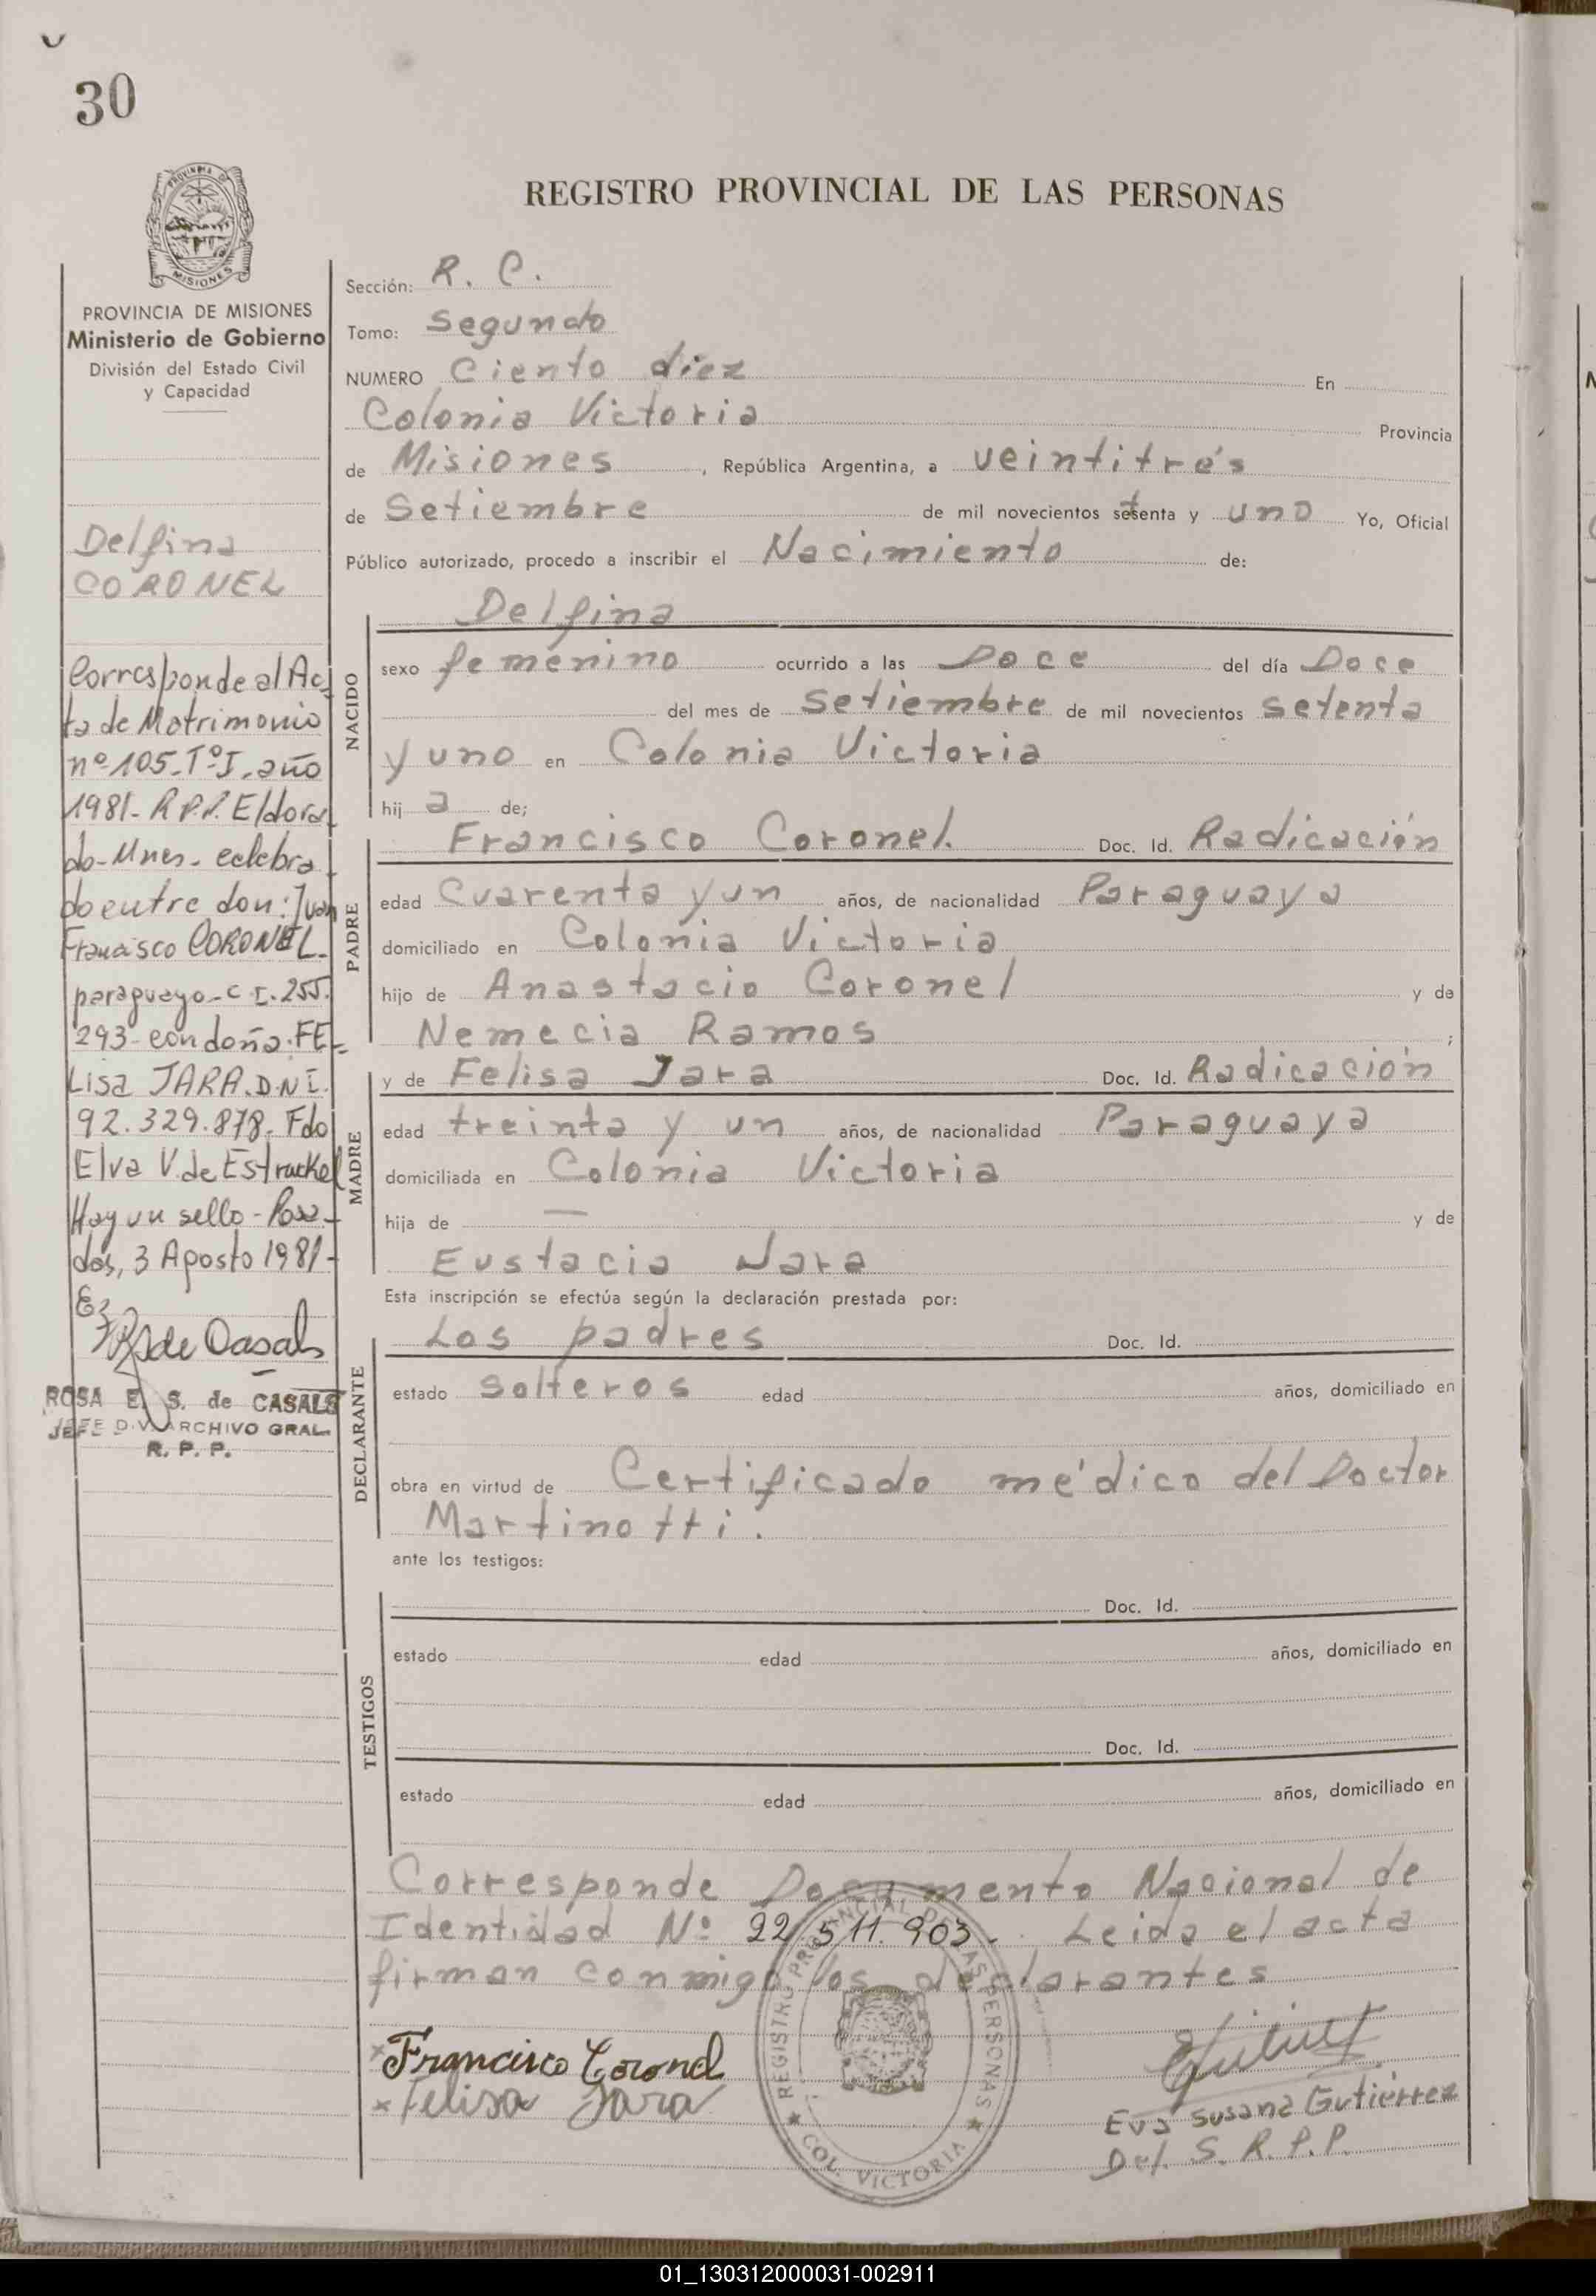 30
REGISTRO PROVINCIAL DE LAS PERSONAS
PROVINCIA DE MISIONES
Ministerio de Gobierno
División del Estado Civil
y Capacidad
Delfina
CORONEL
Corresponde al Ac
ta de Matrimonio
nº 105-Tº I. año
1981- R.P.P. Eldora
do-Mnes- celebra
do entre don: Juan
Francisco CORONEL-
paraguayo-C.I. 255.
293- con doña: FE-
Lisa JARA.D.N.I.
92.329.878. Fdo
Elva V. de Estrackel
Hay un sello-Posa-
das, 3 Agosto 1981-
de Casals
ROSA E. S. de CASALS
JEFE DIV. ARCHIVO GRAL.
R. P. P.
Sección: R. C.
Tomo: Segundo
NUMERO Ciento diez En
Colonia Victoria Provincia
de Misiones, República Argentina, a veintitrés
de Setiembre de mil novecientos setenta y uno Yo, Oficial
Público autorizado, procedo a inscribir el Nacimiento de:
NACIDO
Delfina
sexo femenino ocurrido a las Doce del día Doce
del mes de Setiembre de mil novecientos setenta
y uno en Colonia Victoria
hij a de;
PADRE
Francisco Coronel. Doc. Id. Radicación
edad Cuarenta y un años, de nacionalidad Paraguaya
domiciliado en Colonia Victoria
hijo de Anastacio Coronel y de
Nemecia Ramos ;
MADRE
y de Felisa Jara Doc. Id. Radicación
edad treinta y un años, de nacionalidad Paraguaya
domiciliada en Colonia Victoria
hija de — y de
Eustacia Jara
Esta inscripción se efectúa según la declaración prestada por:
DECLARANTE
Los padres Doc. Id.
estado solteros edad años, domiciliado en
obra en virtud de Certificado médico del Doctor
Martinotti.
ante los testigos:
TESTIGOS
Doc. Id.
estado edad años, domiciliado en
Doc. Id.
estado edad años, domiciliado en
Corresponde Documento Nacional de
Identidad Nº 22.511.903. Leida el acta
firman conmigo los declarantes
x Francisco Coronel
x Felisa Jara
REGISTRO PROVINCIAL DE LAS PERSONAS
COL. VICTORIA
Eva Susana Gutiérrez
Del. S. R. P. P.
01_130312000031-002911